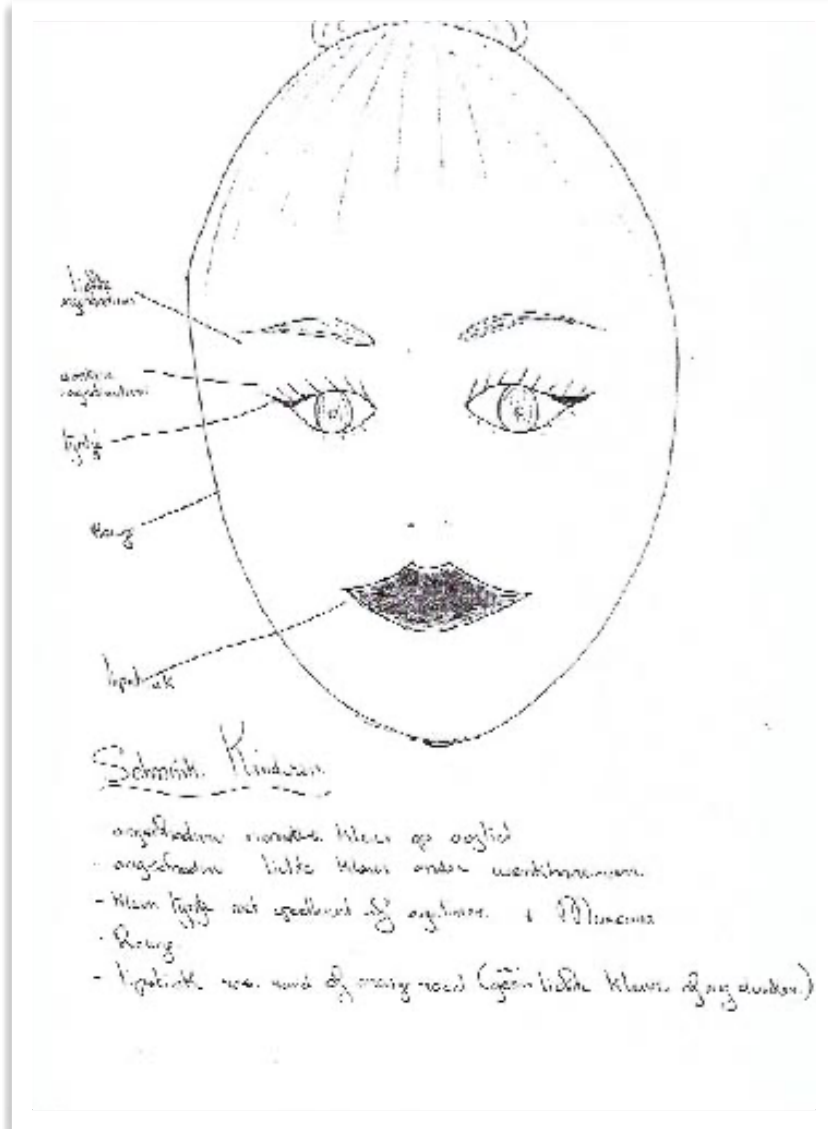 lichte
oogschaduw
donkere
oogschaduw
lijntje
Rouge
lipstick
Schmink Kinderen
- oogschaduw donkere kleur op ooglid
- oogschaduw lichte kleur onder wenkbrauwen
- klein lijntje met oogpotlood of eyeliner + Mascara
- Rouge
- lipstick roze rood of oranje rood (géén lichte kleur of erg donker)